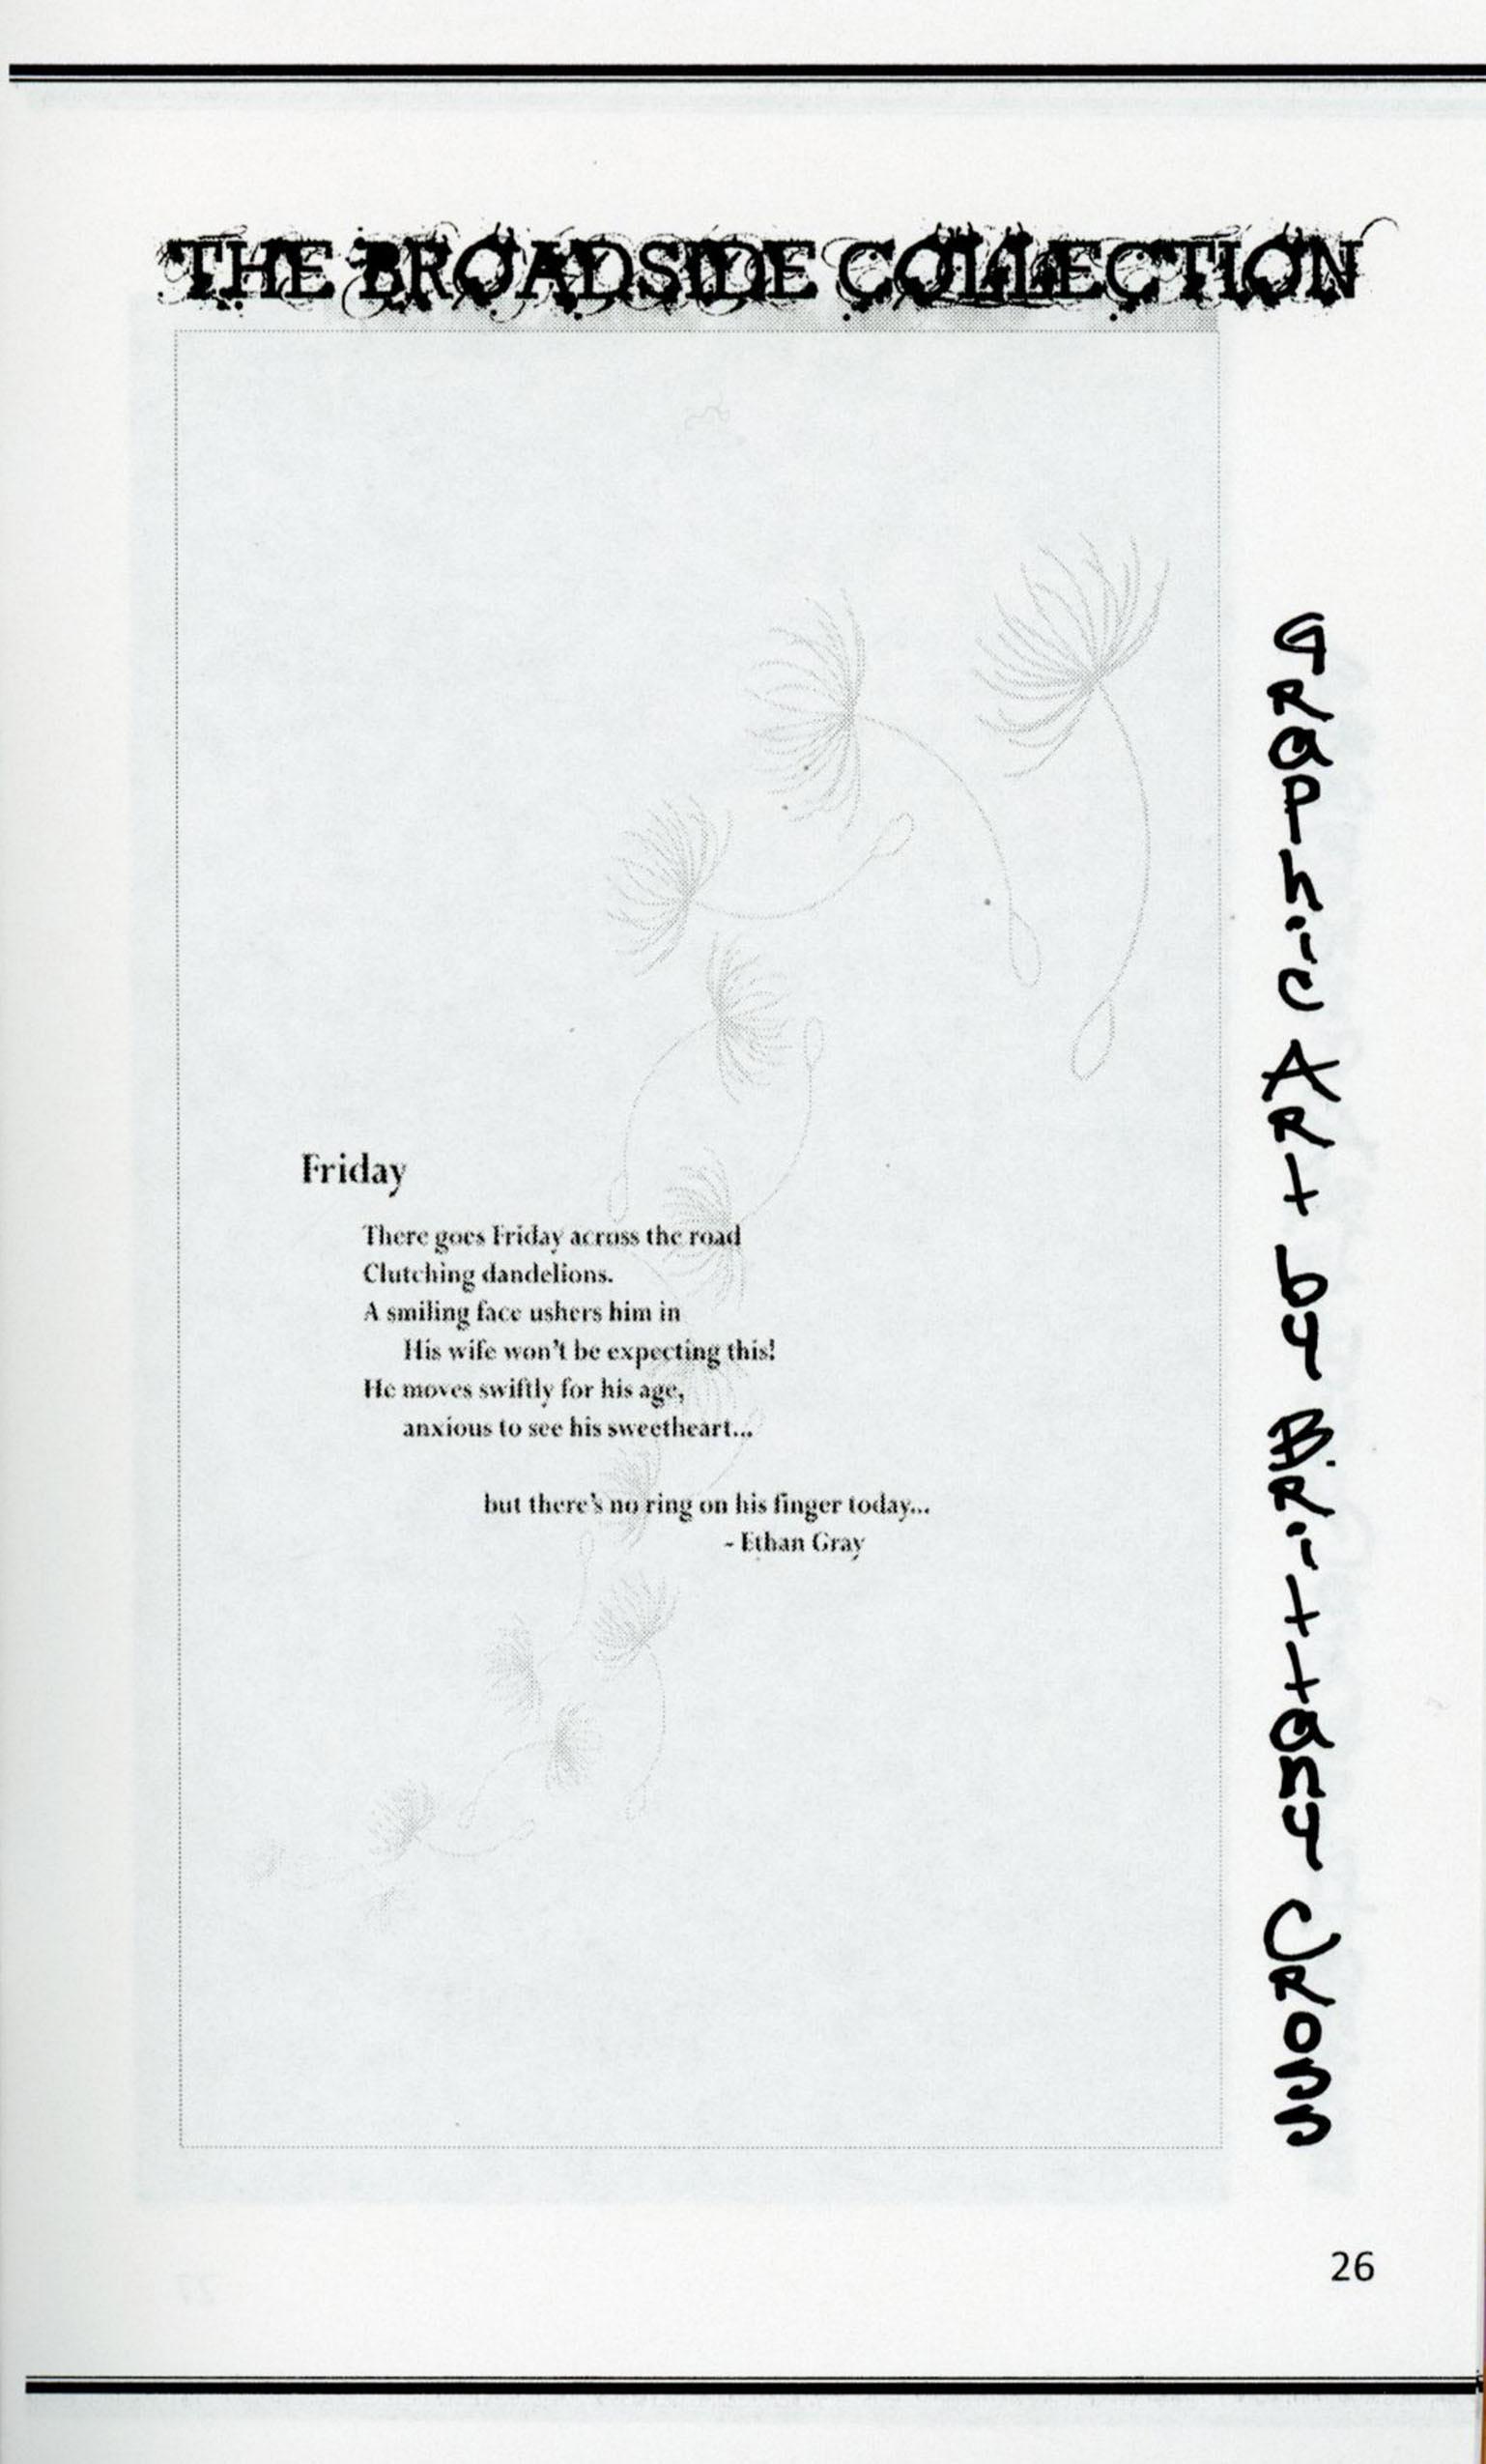 THE BROADSIDE COLLECTION
Friday
There goes Friday across the road
Clutching dandelions.
A smiling face ushers him in
His wife won't be expecting this!
He moves swiftly for his age,
anxious to see his sweetheart...
but there's no ring on his finger today...
- Ethan Gray
GRaphic ARt by BRittany CRoss
26